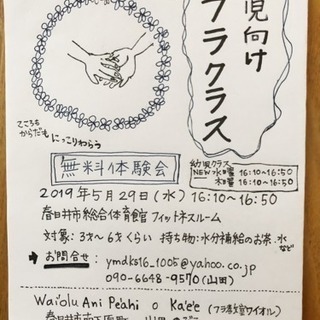 児向け
フラクラス
こころも
からだも にっこりわらう
無料体験会
幼児クラス
NEW 水曜 16:10~16:50
木曜 16:10~16:50
2019年5月29日(水) 16:10~16:50
春日井市総合体育館 フィットネスルーム
対象: 3才~6才くらい 持ち物:水分補給のお茶、水
など
→ お問合せ: ymdks16_1005@yahoo.co.jp
090-6648-9570(山田)
Wai'olu Ani Pe'ahi o Ka'e'e (フラ教室ワイオル)
春日井市